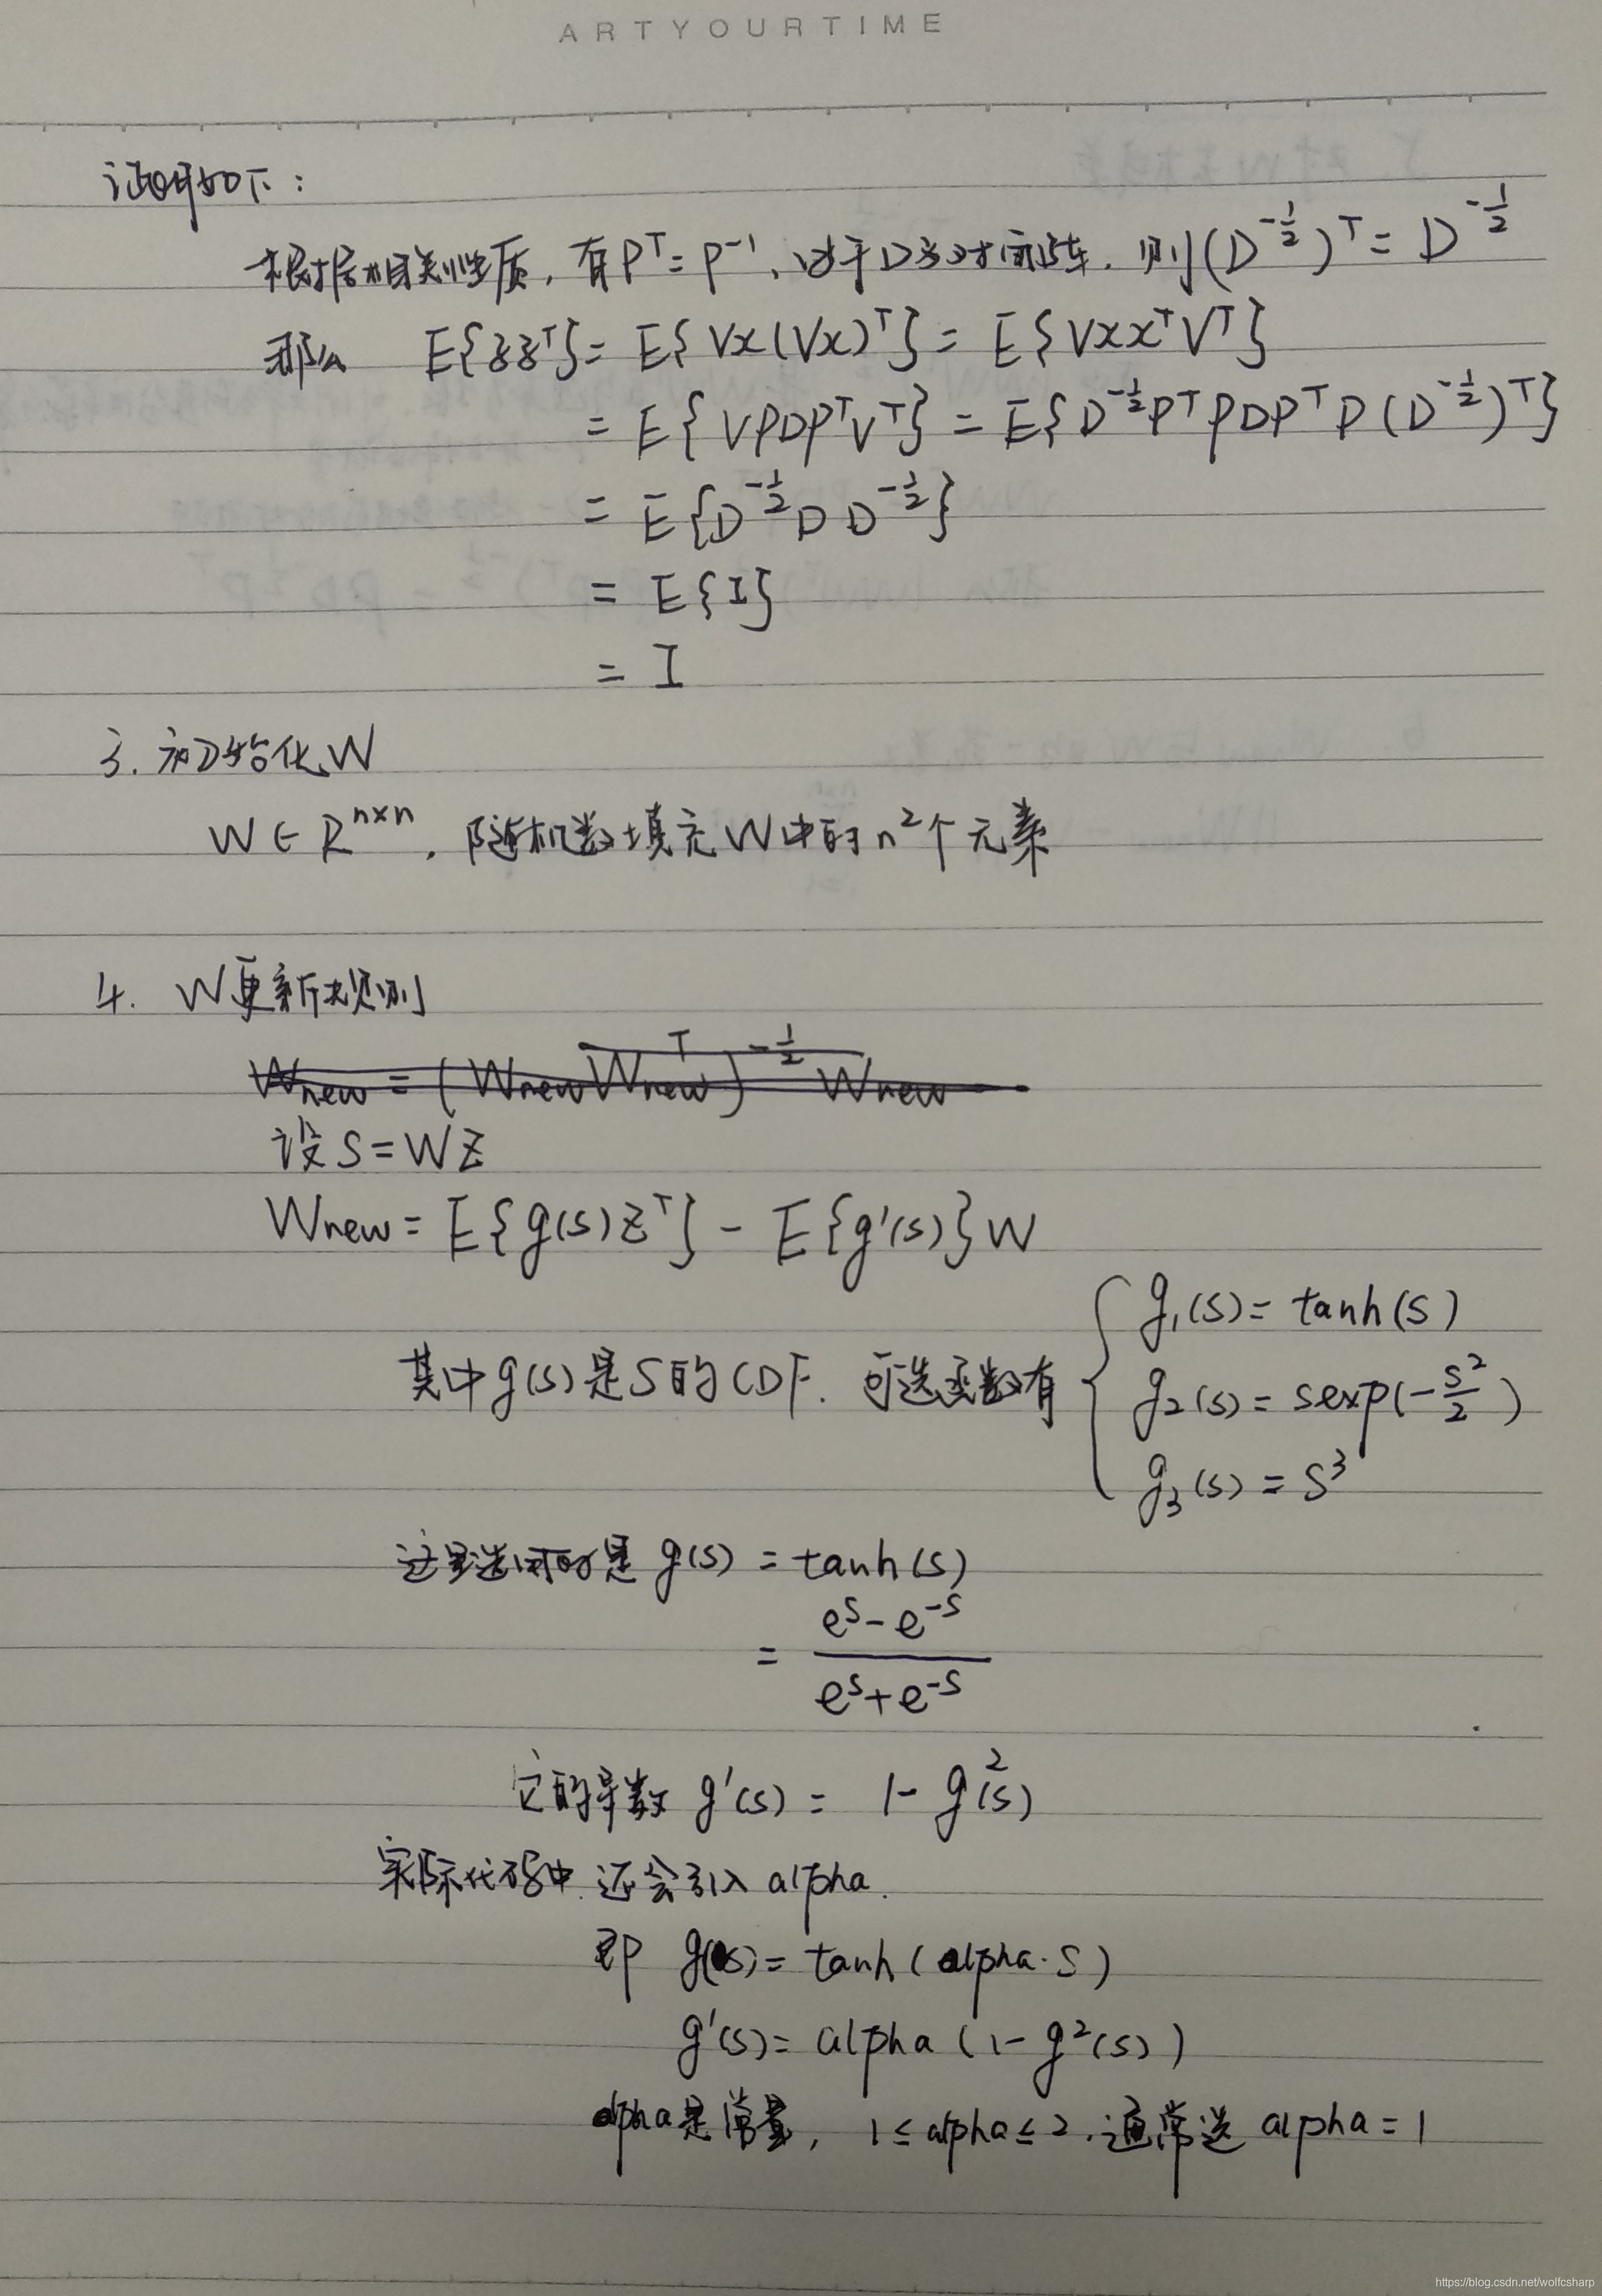 ARTYOURTIME
证明如下:
根据相关性质,有 Pᵀ=P⁻¹,由于D为对角阵,则(D^{-1/2})ᵀ=D^{-1/2}
那么 E{zzᵀ}=E{Vx(Vx)ᵀ}=E{VxxᵀVᵀ}
=E{VPDPᵀVᵀ}=E{D^{-1/2}PᵀPDPᵀP(D^{-1/2})ᵀ}
=E{D^{-1/2}DD^{-1/2}}
=E{I}
=I
3.初始化W
W∈R^{n×n},随机数填充W中的n²个元素
4. W更新规则
Wnew=(WnewWnewᵀ)^{-1/2}Wnew
设S=WZ
Wnew=E{g(s)zᵀ}-E{g'(s)}W
其中g(s)是S的CDF.可选函数有
g₁(s)=tanh(s)
g₂(s)=sexp(-s²/2)
g₃(s)=s³
这里选用的是 g(s)=tanh(s)
=(eˢ-e⁻ˢ)/(eˢ+e⁻ˢ)
它的导数 g'(s)=1-g²(s)
实际代码中.还会引入alpha.
即 g(s)=tanh(alpha·s)
g'(s)=alpha(1-g²(s))
alpha是常量, 1≤alpha≤2.通常选alpha=1
https://blog.csdn.net/wolfcsharp